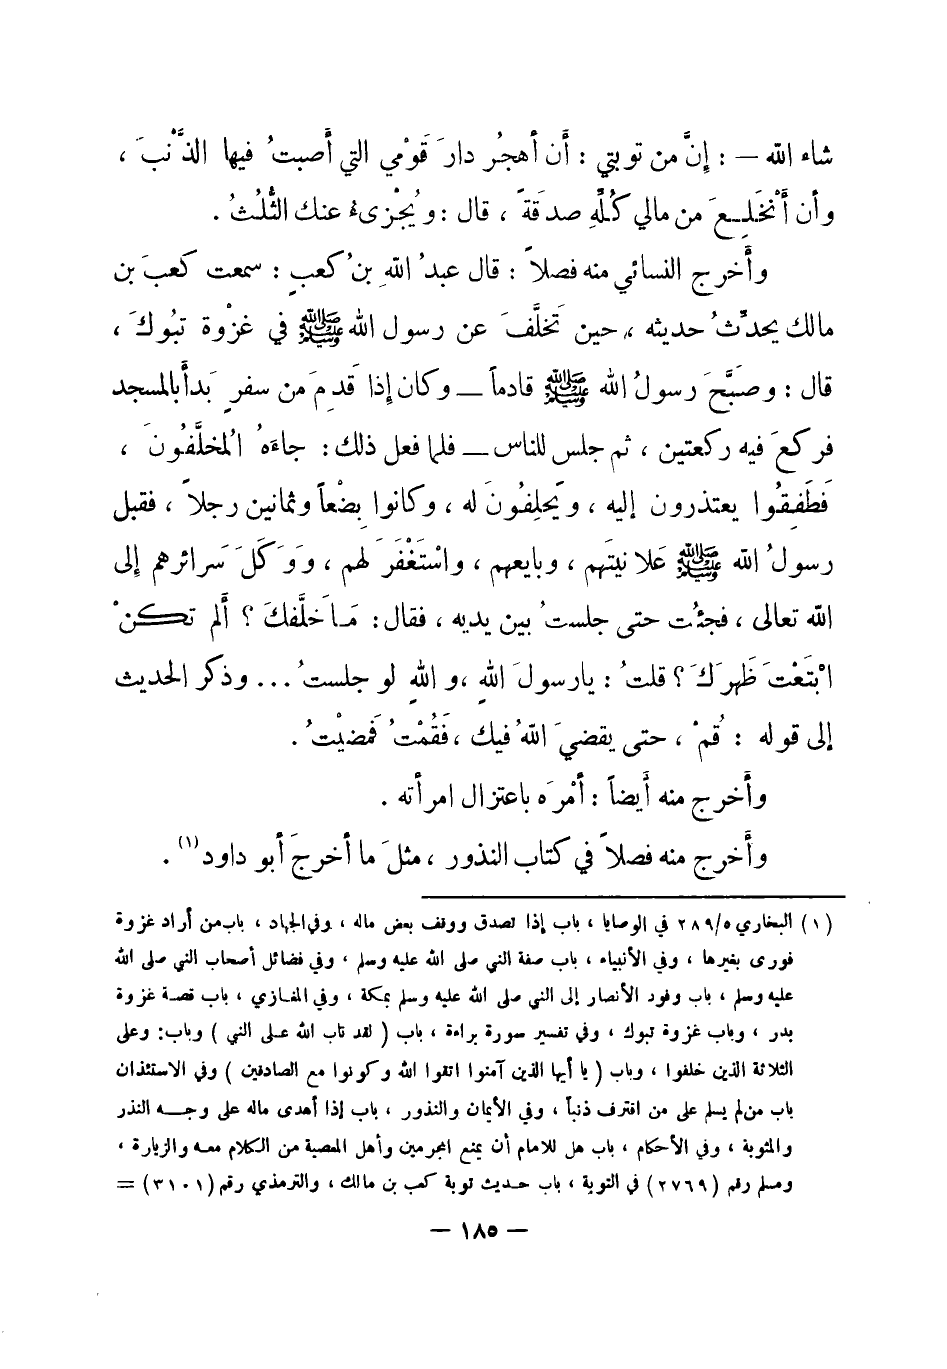 شاء الله – : إنَّ من توبتي : أن أهجُر دارَ قَومْي التي أصبتُ فيها الذَّنْبَ ،
وأن أَنْخَلِعَ من مالي كُلِّهِ صدقةً ، قال : ويُجْزىءُ عنك الثُّلُثُ .
وأخرج النسائي منه فصلاً : قال عبدُ اللهِ بنُ كعبٍ : سمعت كعبَ بن
مالك يحدِّثُ حديثه ، حين تَخلَّفَ عن رسول الله ﷺ في غزْوة تبُوكَ ،
قال : وصَبَّحَ رسولُ الله ﷺ قادماً – وكان إذا قَدِمَ من سفرٍ بَدأ بالمسجد
فركعَ فيه ركعتين ، ثم جلس للناس – فلما فعل ذلك : جاءَهُ الْمُخلَّفُونَ ،
فَطَفِقُوا يعتذرون إليه ، ويَحلِفُونَ له ، وكانوا بِضْعاً وثمانين رجلاً ، فقبل
رسولُ الله ﷺ عَلانيتَهم ، وبايعهم ، واسْتَغْفَرَ لهم ، وَوَكَلَ سَرائرهم إلى
الله تعالى ، فجئت حتى جلستُ بين يديه ، فقال : مَا خلَّفكَ ؟ ألم تكنْ
ابْتَعْتَ ظَهرَكَ ؟ قلتُ : يا رسولَ اللهِ ، واللهِ لو جلستُ ... وذكر الحديث
إلى قوله : قُمْ ، حتى يقضيَ اللهُ فيك ، فَقُمْتُ فَمضيْتُ .
وأخرج منه أيضاً : أمْرَه باعتزال امرأته .
وأخرج منه فصلاً في كتاب النذور ، مثلَ ما أخرجَ أبو داود (١) .
(١) البخاري ٢٨٩/٥ في الوصايا ، باب إذا تصدق ووقف بعض ماله ، وفي الجهاد ، باب من أراد غزوة
فورى بغيرها ، وفي الأنبياء ، باب صفة النبي صلى الله عليه وسلم ، وفي فضائل أصحاب النبي صلى الله
عليه وسلم ، باب وفود الأنصار إلى النبي صلى الله عليه وسلم بمكة ، وفي المغازي ، باب قصة غزوة
بدر ، وباب غزوة تبوك ، وفي تفسير سورة براءة ، باب ( لقد تاب الله على النبي ) وباب : وعلى
الثلاثة الذين خلفوا ، وباب ( يا أيها الذين آمنوا اتقوا الله وكونوا مع الصادقين ) وفي الاستئذان
باب من لم يسلم على من اقترف ذنباً ، وفي الأيمان والنذور ، باب إذا أهدى ماله على وجه النذر
والمثوبة ، وفي الأحكام ، باب هل للامام أن يمنع المجرمين وأهل المعصية من الكلام معه والزيارة ،
ومسلم رقم (٢٧٦٩) في التوبة ، باب حديث توبة كعب بن مالك ، والترمذي رقم (٣١٠١) =
– ١٨٥ –